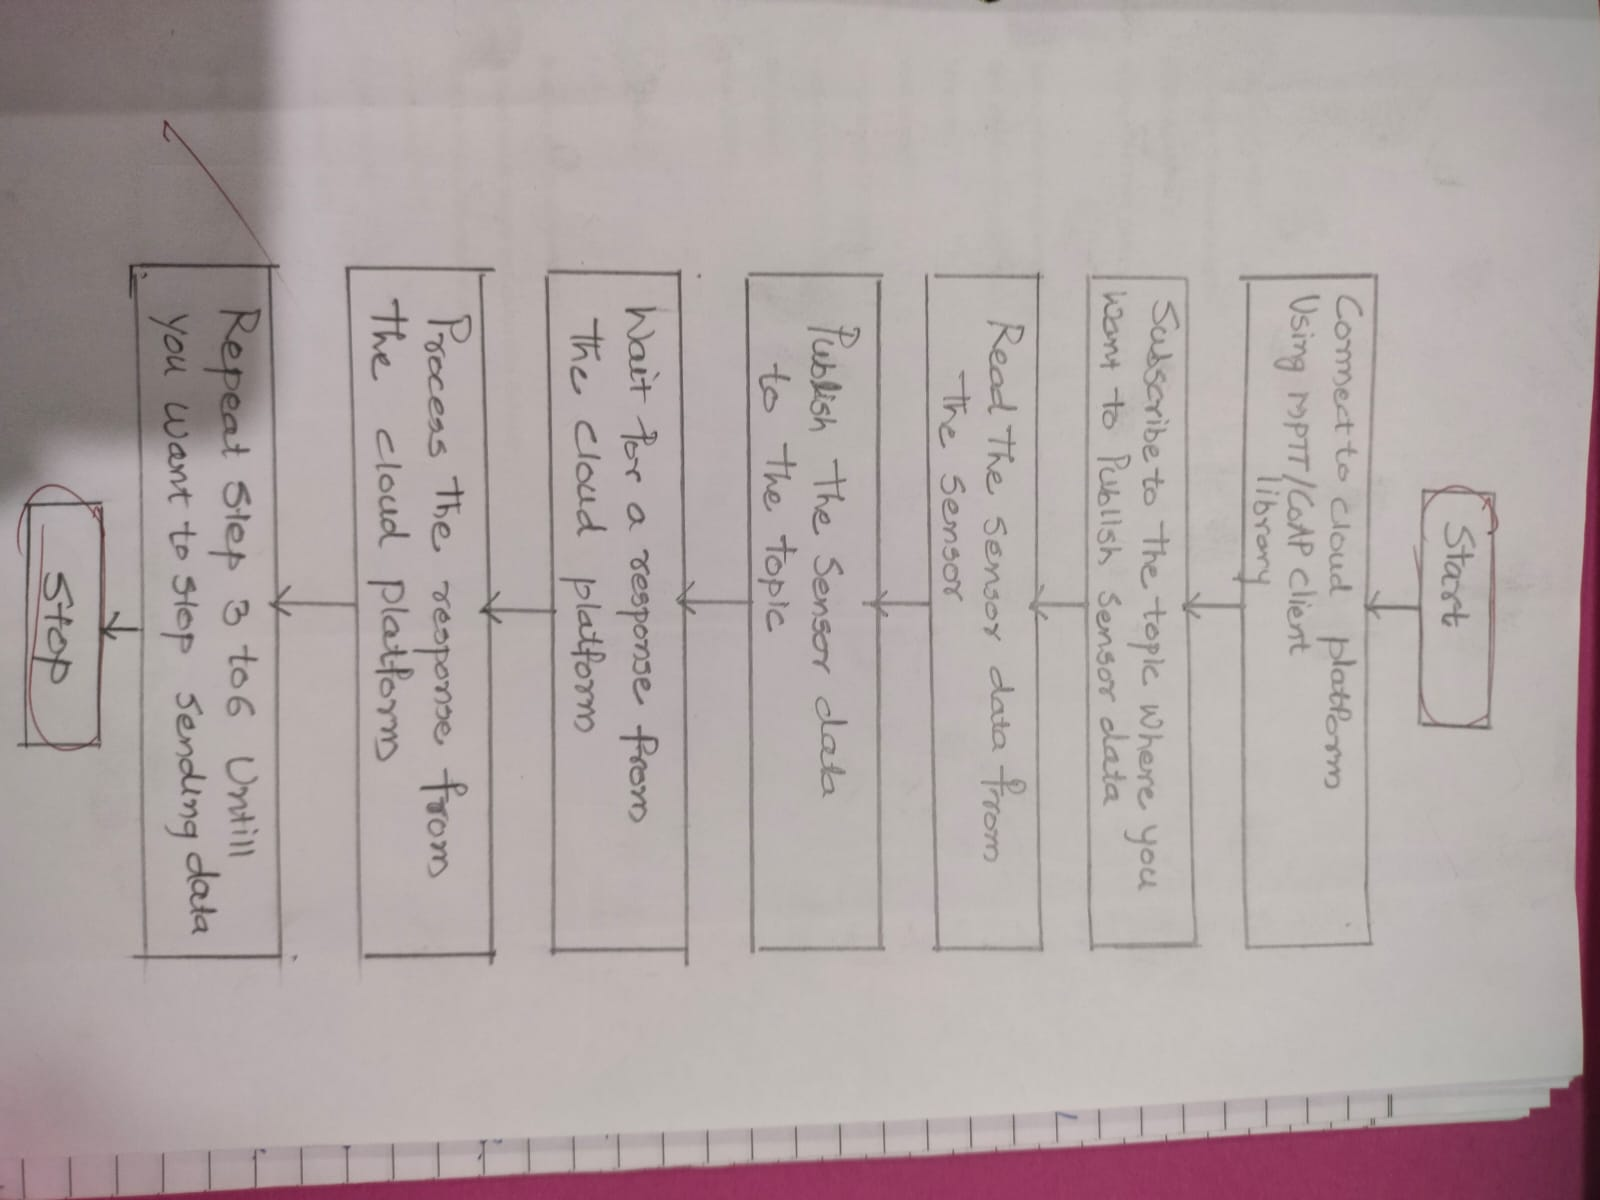 Start
Connect to cloud platform
Using MPTT/CoAP client
library
Subscribe to the topic where you
want to Publish sensor data
Read the sensor data from
the sensor
Publish the sensor data
to the topic
Wait for a response from
the cloud platform
Process the response from
the cloud platform
Repeat Step 3 to 6 Untill
you want to stop sending data
Stop